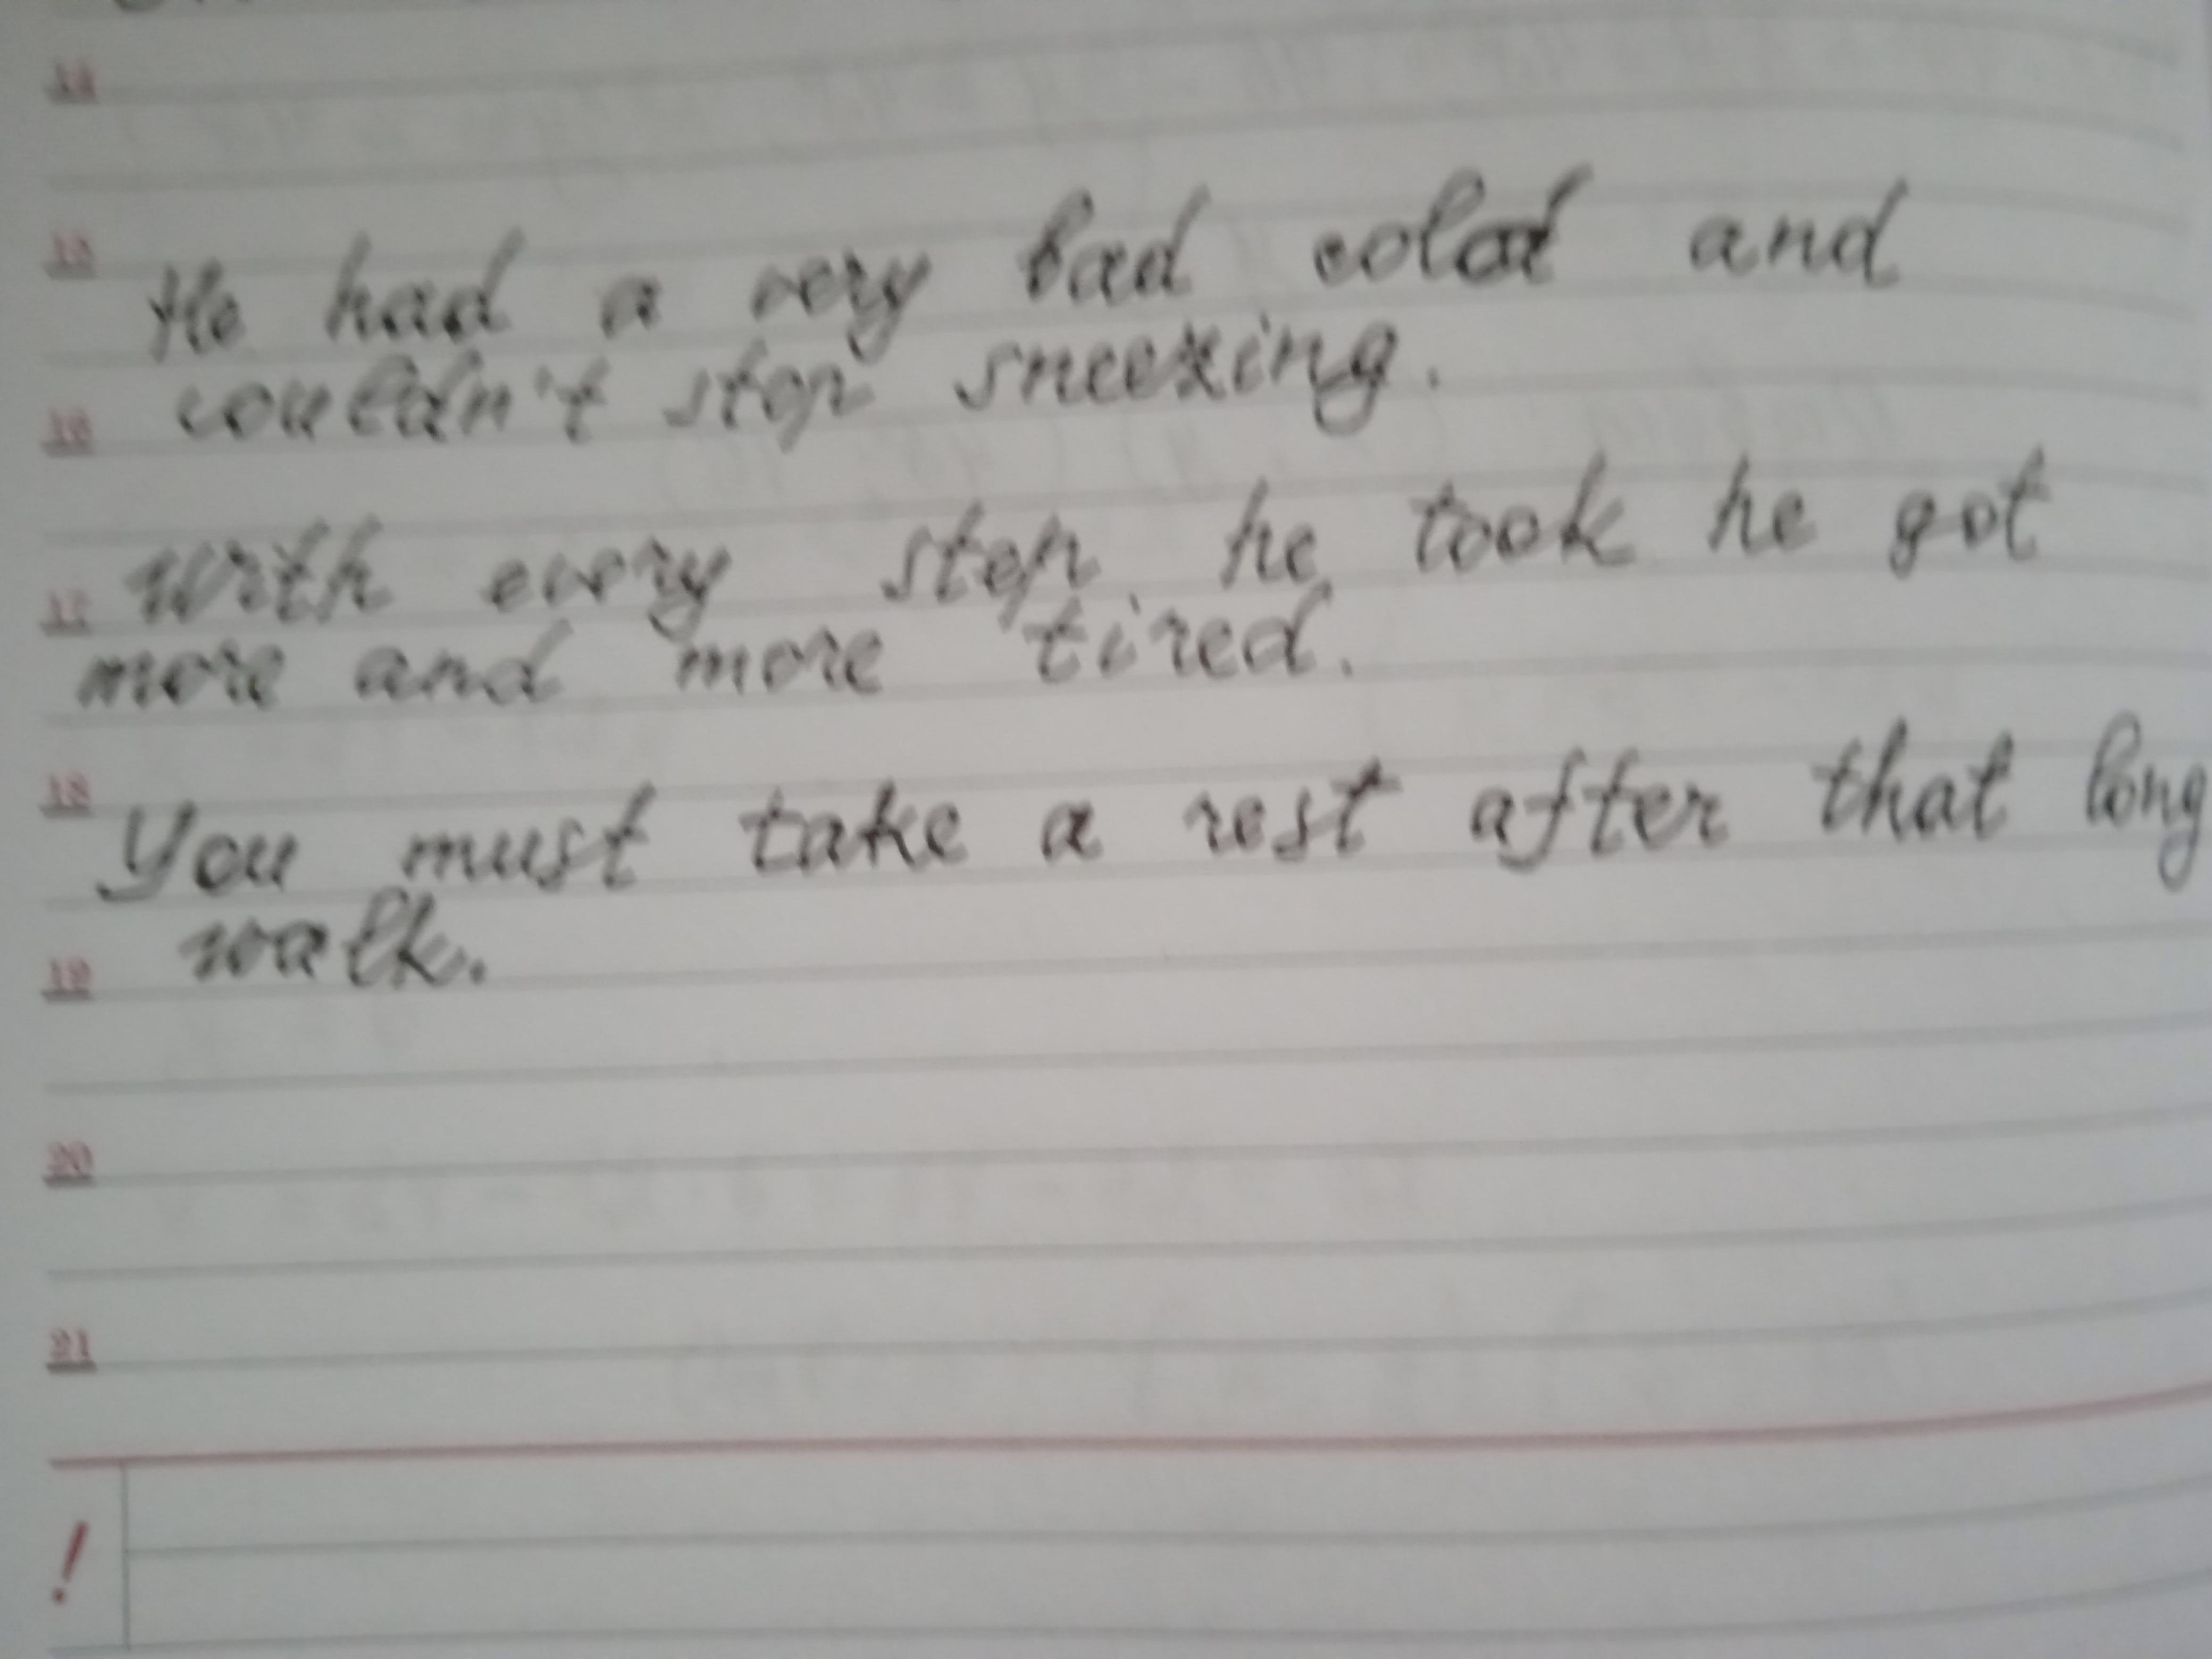 14
15
He had a very bad cold and
couldn't stop sneezing.
16
With every step he took he got
17
more and more tired.
18
You must take a rest after that long
walk.
19
20
21
!